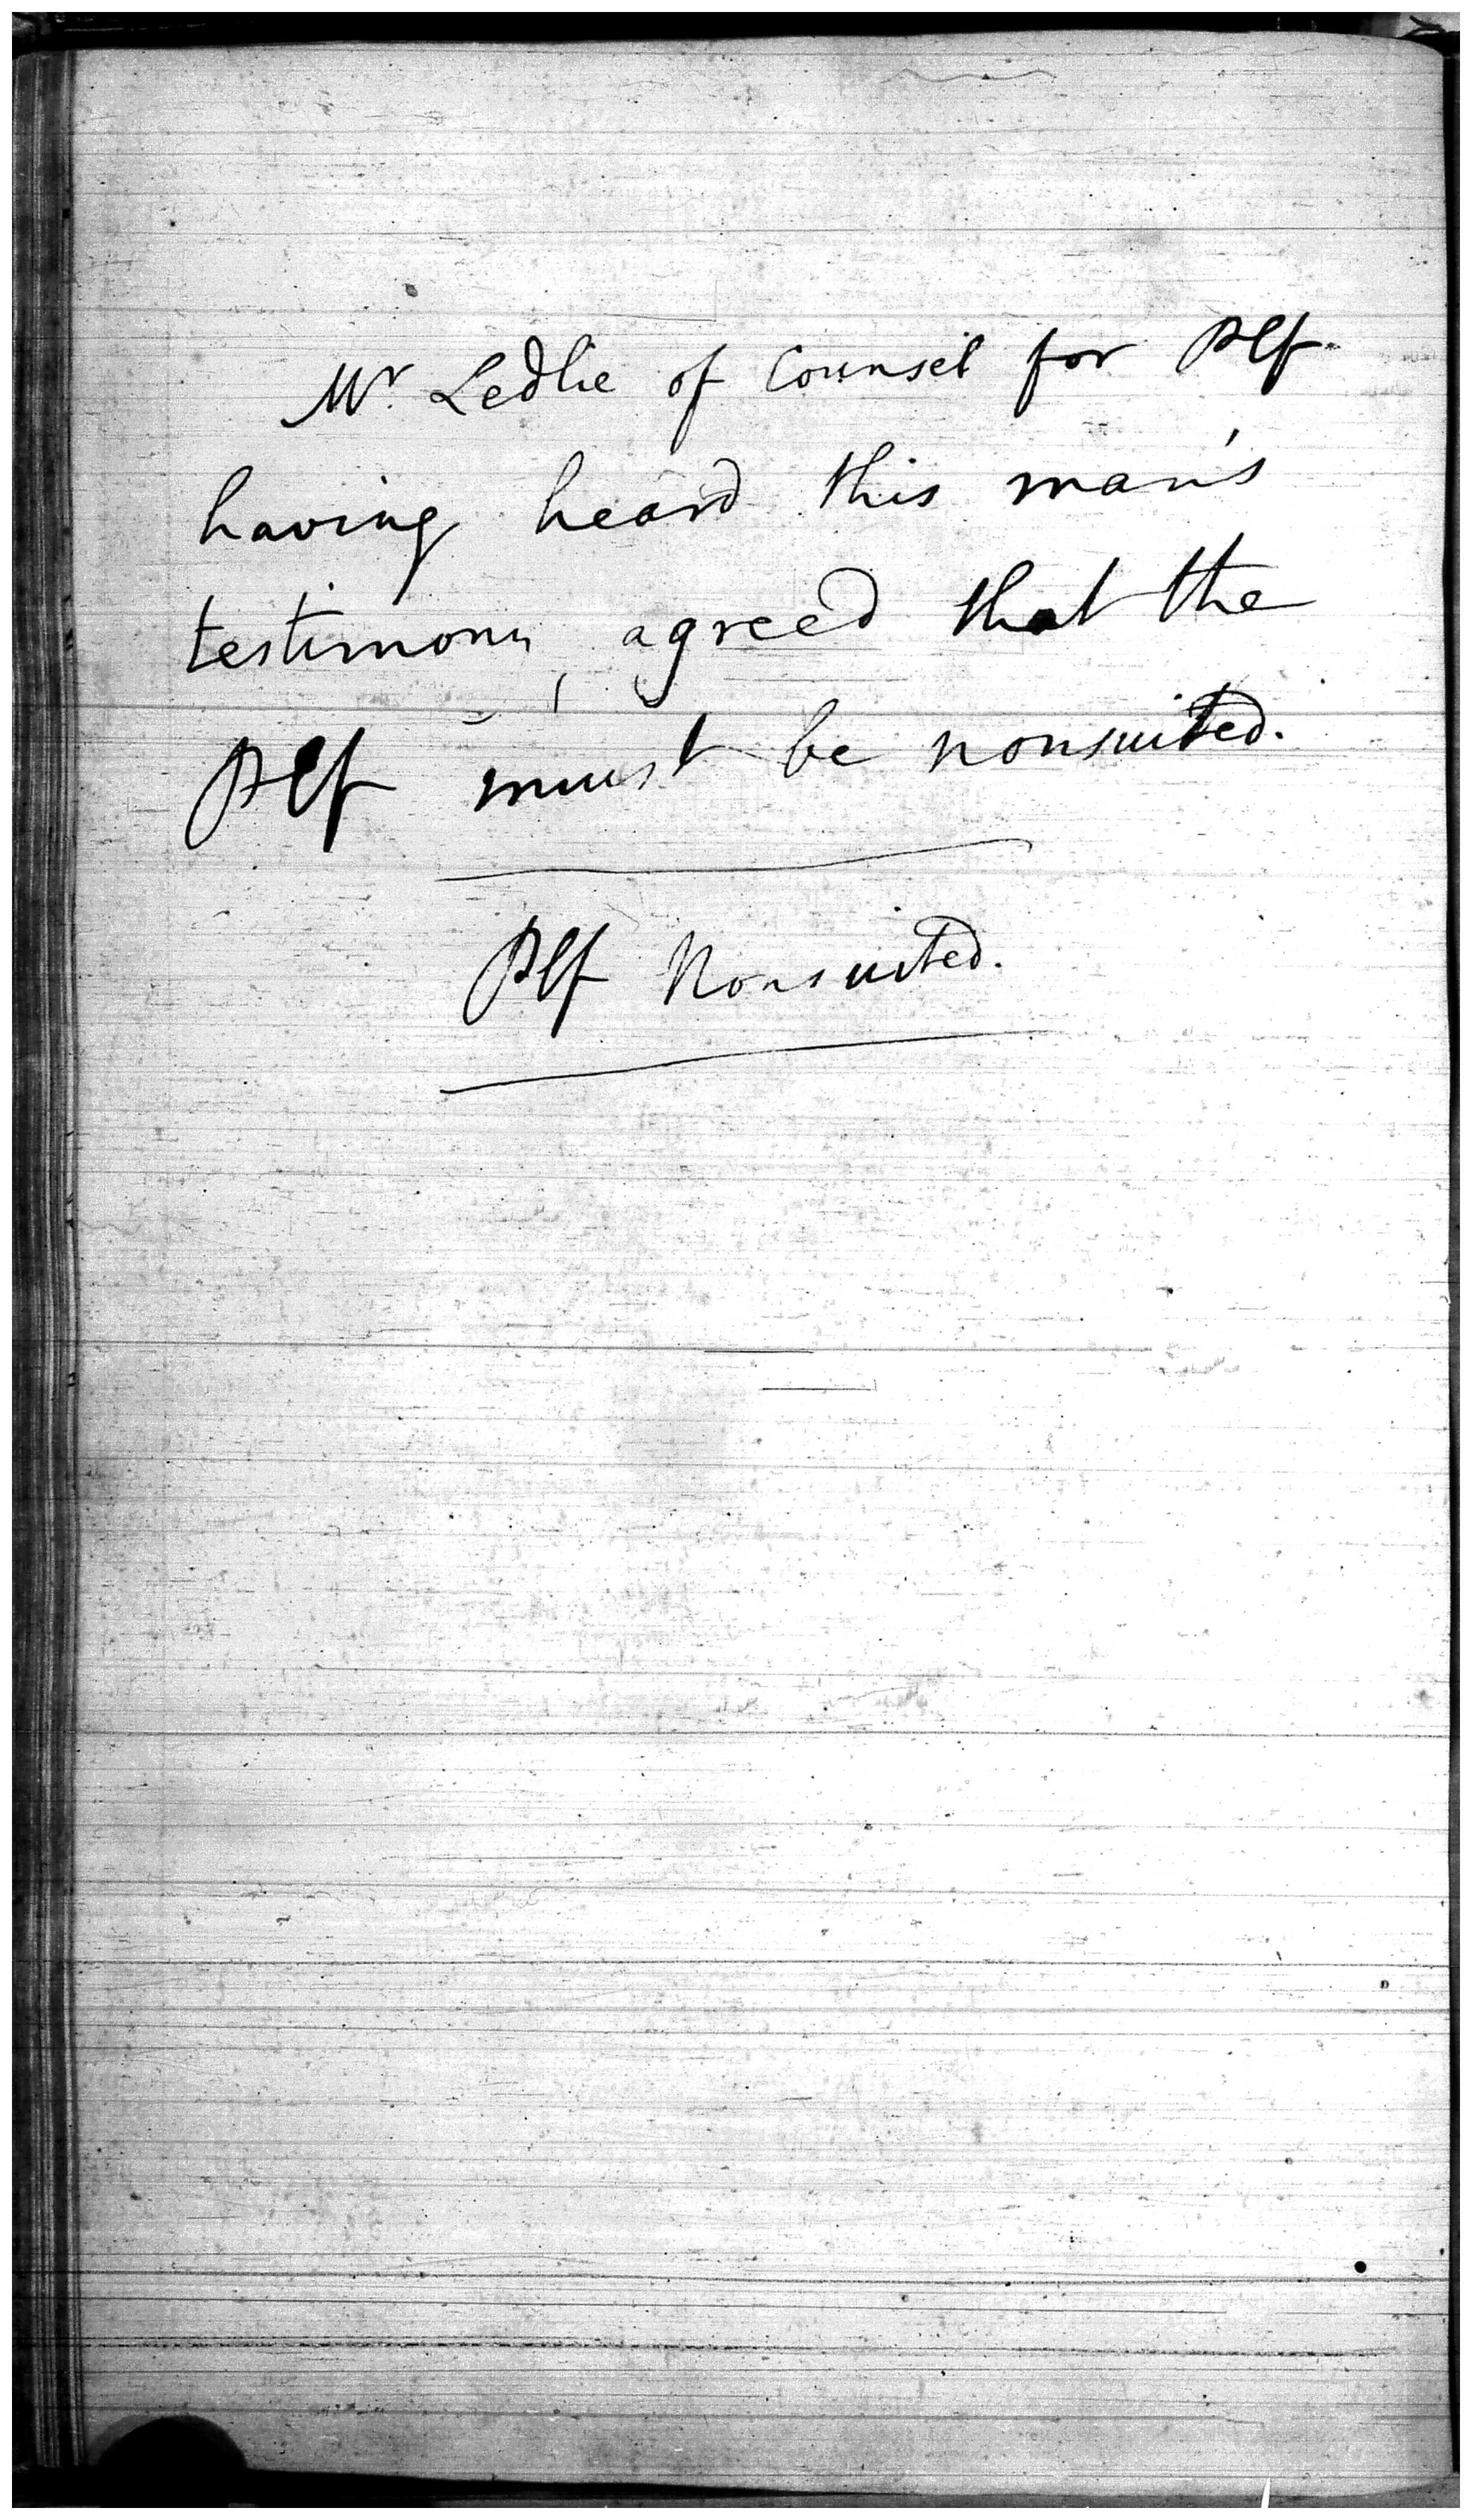 Mr. Ledlie of Counsel for Plf.
having heard this man's
testimony, agreed that the
Plf must be nonsuited.
Plf Nonsuited.